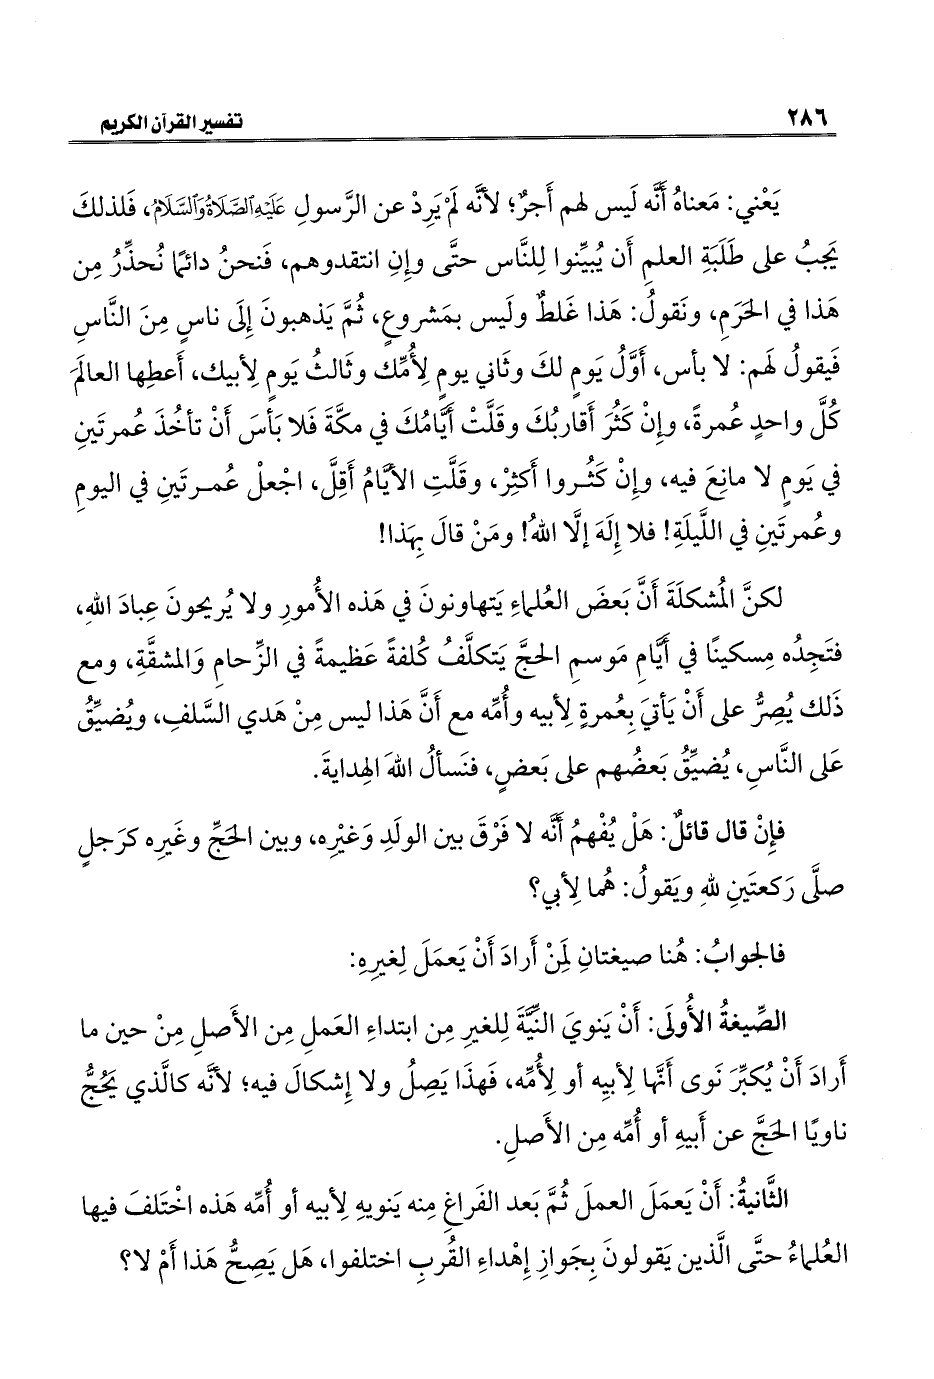 ٢٨٦ تفسير القرآن الكريم
يَعْني: مَعناهُ أنَّه لَيس لهم أَجرٌ؛ لأنَّه لَمْ يَرِدْ عن الرَّسولِ عَلَيْهِ الصَّلَاةُ وَالسَّلَامُ، فَلذلكَ
يَجبُ على طَلَبَةِ العلمِ أن يُبيِّنوا لِلنَّاس حتَّى وإنِ انتقدوهم، فَنحنُ دائمًا نُحذِّرُ مِن
هَذا في الحَرَمِ، ونَقولُ: هَذا غَلطٌ ولَيس بمَشروعٍ، ثُمَّ يَذهبونَ إلَى ناسٍ مِنَ النَّاسِ
فَيقولُ لهم: لا بأس، أَوَّلُ يَومٍ لكَ وثَاني يومٍ لِأُمِّك وثَالثُ يَومٍ لِأبيك، أَعطِها العالمَ
كُلَّ واحدٍ عُمرةً، وإنْ كَثُرَ أَقاربُكَ وقَلَّتْ أَيَّامُكَ في مكَّةَ فَلا بَأسَ أنْ تأخُذَ عُمرتَينِ
في يَومٍ لا مانِعَ فيه، وإنْ كَثُروا أَكثِرْ، وقَلَّتِ الأيَّامُ أَقِلَّ، اجْعلْ عُمرتَينِ في اليومِ
وعُمرتَينِ في اللَّيلَةِ! فلا إلَهَ إلَّا اللهُ! ومَنْ قالَ بِهَذا!
لكنَّ المُشكلَةَ أنَّ بَعضَ العُلماءِ يَتهاونونَ في هَذه الأُمورِ ولا يُريحونَ عِبادَ اللهِ،
فتَجِدُه مِسكينًا في أيَّامِ مَوسمِ الحجِّ يَتكلَّفُ كُلفةً عَظيمةً في الزِّحامِ وَالمشقَّةِ، ومع
ذَلك يُصِرُّ على أنْ يَأتيَ بِعُمرةٍ لِأبيه وأُمِّه مع أنَّ هَذا ليس مِنْ هَدي السَّلفِ، ويُضيِّقُ
عَلى النَّاسِ، يُضيِّقُ بَعضُهم على بَعضٍ، فنَسألُ اللهَ الهِدايةَ.
فإنْ قال قائلٌ: هَلْ يُفْهمُ أنَّه لا فَرْقَ بين الولَدِ وَغيْرِه، وبين الحَجِّ وغَيرِه كرَجلٍ
صلَّى رَكعتَينِ للهِ ويَقولُ: هُما لِأبي؟
فالجوابُ: هُنا صيغتانِ لِمَنْ أرادَ أنْ يَعمَلَ لِغيرِهِ:
الصِّيغةُ الأُولَى: أنْ يَنويَ النِّيَّةَ لِلغيرِ مِن ابتداءِ العَملِ مِن الأَصلِ مِنْ حين ما
أَرادَ أنْ يُكبِّرَ نَوى أنَّها لِأبيِه أو لِأُمِّه، فَهذا يَصِلُ ولا إِشكالَ فيه؛ لأنَّه كالَّذي يَحُجُّ
ناويًا الحَجَّ عن أَبيهِ أو أُمِّه مِن الأَصلِ.
الثَّانيةُ: أنْ يَعمَلَ العملَ ثُمَّ بَعد الفَراغِ مِنه يَنويهِ لِأبيه أو أُمِّه هَذه اخْتلَفَ فيها
العُلماءُ حتَّى الَّذين يَقولونَ بِجَوازِ إِهْداءِ القُربِ اختلفوا، هَل يَصِحُّ هَذا أمْ لا؟